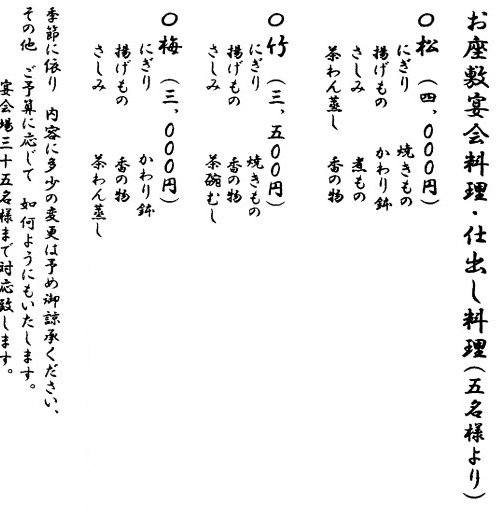 お座敷宴会料理・仕出し料理(五名様より)
○松 (四,000円)
にぎり 焼きもの
揚げもの かわり鉢
さしみ 煮もの
茶わん蒸し 香の物
○竹 (三,五00円)
にぎり 焼きもの
揚げもの 香の物
さしみ 茶碗むし
○梅 (三,000円)
にぎり かわり鉢
揚げもの 香の物
さしみ 茶わん蒸し
季節に依り 内容に多少の変更は予め御諒承ください、
その他 ご予算に応じて 如何ようにもいたします。
宴会場三十五名様まで対応致します。